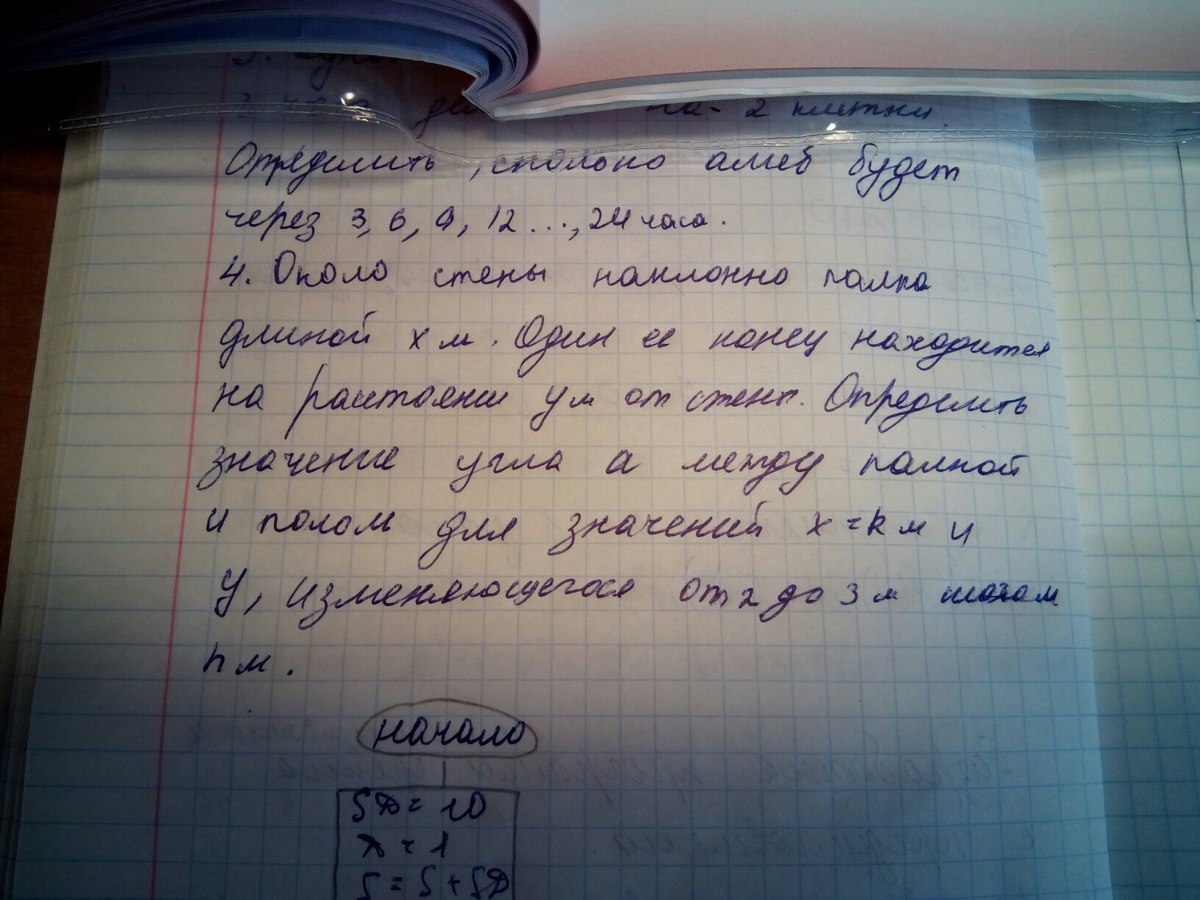 2 клетки.
Определить, сколько амеб будет
через 3, 6, 9, 12 ..., 24 часа.
4. Около стены наклонно палка
длиной x м. Один ее конец находится
на растояни y м от стены. Определить
значение угла а между палкой
и полом для значений x = k м и
y, изменяющегося от 2 до 3 м шагом
h м.
начало
x = 1